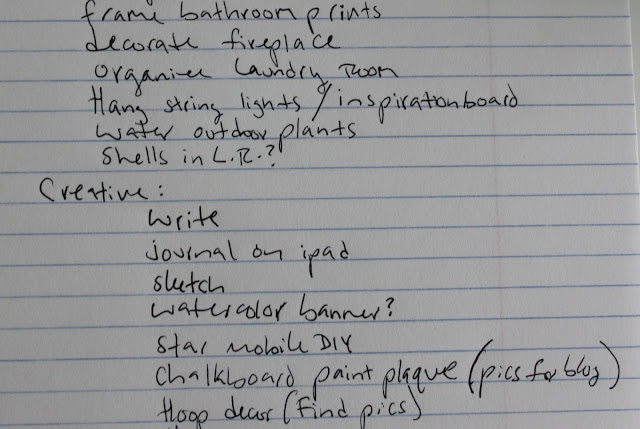 frame bathroom prints
decorate fireplace
organize Laundry Room
Hang string lights / inspirationboard
water outdoor plants
Shells in L.R.?
Creative:
write
journal on ipad
sketch
watercolor banner?
Star mobile DIY
Chalkboard paint plaque (pics for blog)
Hoop decor (Find pics)